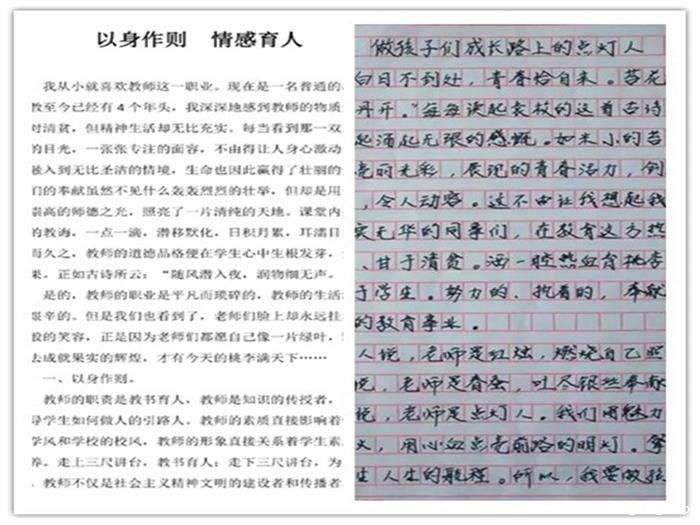 以身作则 情感育人
我从小就喜欢教师这一职业。现在是一名普通的
教至今已经有4个年头,我深深地感到教师的物质
对清贫,但精神生活却无比充实。每当看到那一双
的目光,一张张专注的面容,不由得让人身心激动
融入到无比圣洁的情境,生命也因此赢得了壮丽的
们的奉献虽然不见什么轰轰烈烈的壮举,但却是用
崇高的师德之光,照亮了一片清纯的天地。课堂内
的教诲,一点一滴,潜移默化,日积月累,耳濡目
而久之,教师的道德品格便在学生心中生根发芽,
果。正如古诗所云:“随风潜入夜,润物细无声。
是的,教师的职业是平凡而琐碎的,教师的生活
艰辛的。但是我们也看到了,老师们脸上却永远挂
的笑容,正是因为老师们都愿自己像一片绿叶,
去成就果实的辉煌,才有今天的桃李满天下……
一、以身作则。
教师的职责是教书育人,教师是知识的传授者,
导学生如何做人的引路人。教师的素质直接影响着
学风和学校的校风,教师的形象直接关系着学生素
养。走上三尺讲台,教书育人;走下三尺讲台,为
。教师不仅是社会主义精神文明的建设者和传播者
做孩子们成长路上的点灯人
白日不到处,青春恰自来。苔花
丹开。”每每读起袁枚的这首古诗
起涌起无限的感慨。如米小的苔
亮丽光彩,展现的青春活力,倒
,令人动容。这不由让我想起我
实无华的同事们,在教育这方热
、甘于清贫。洒一腔热血育桃李
于学生。努力的、执着的,奉献
的教育事业。
人说,老师是红烛,燃烧自己照
说,老师是春蚕,吐尽银丝奉献
说,老师是点灯人。我们用魅力
火,用心血点亮前路的明灯。
生人生的航程。所以,我要做孩